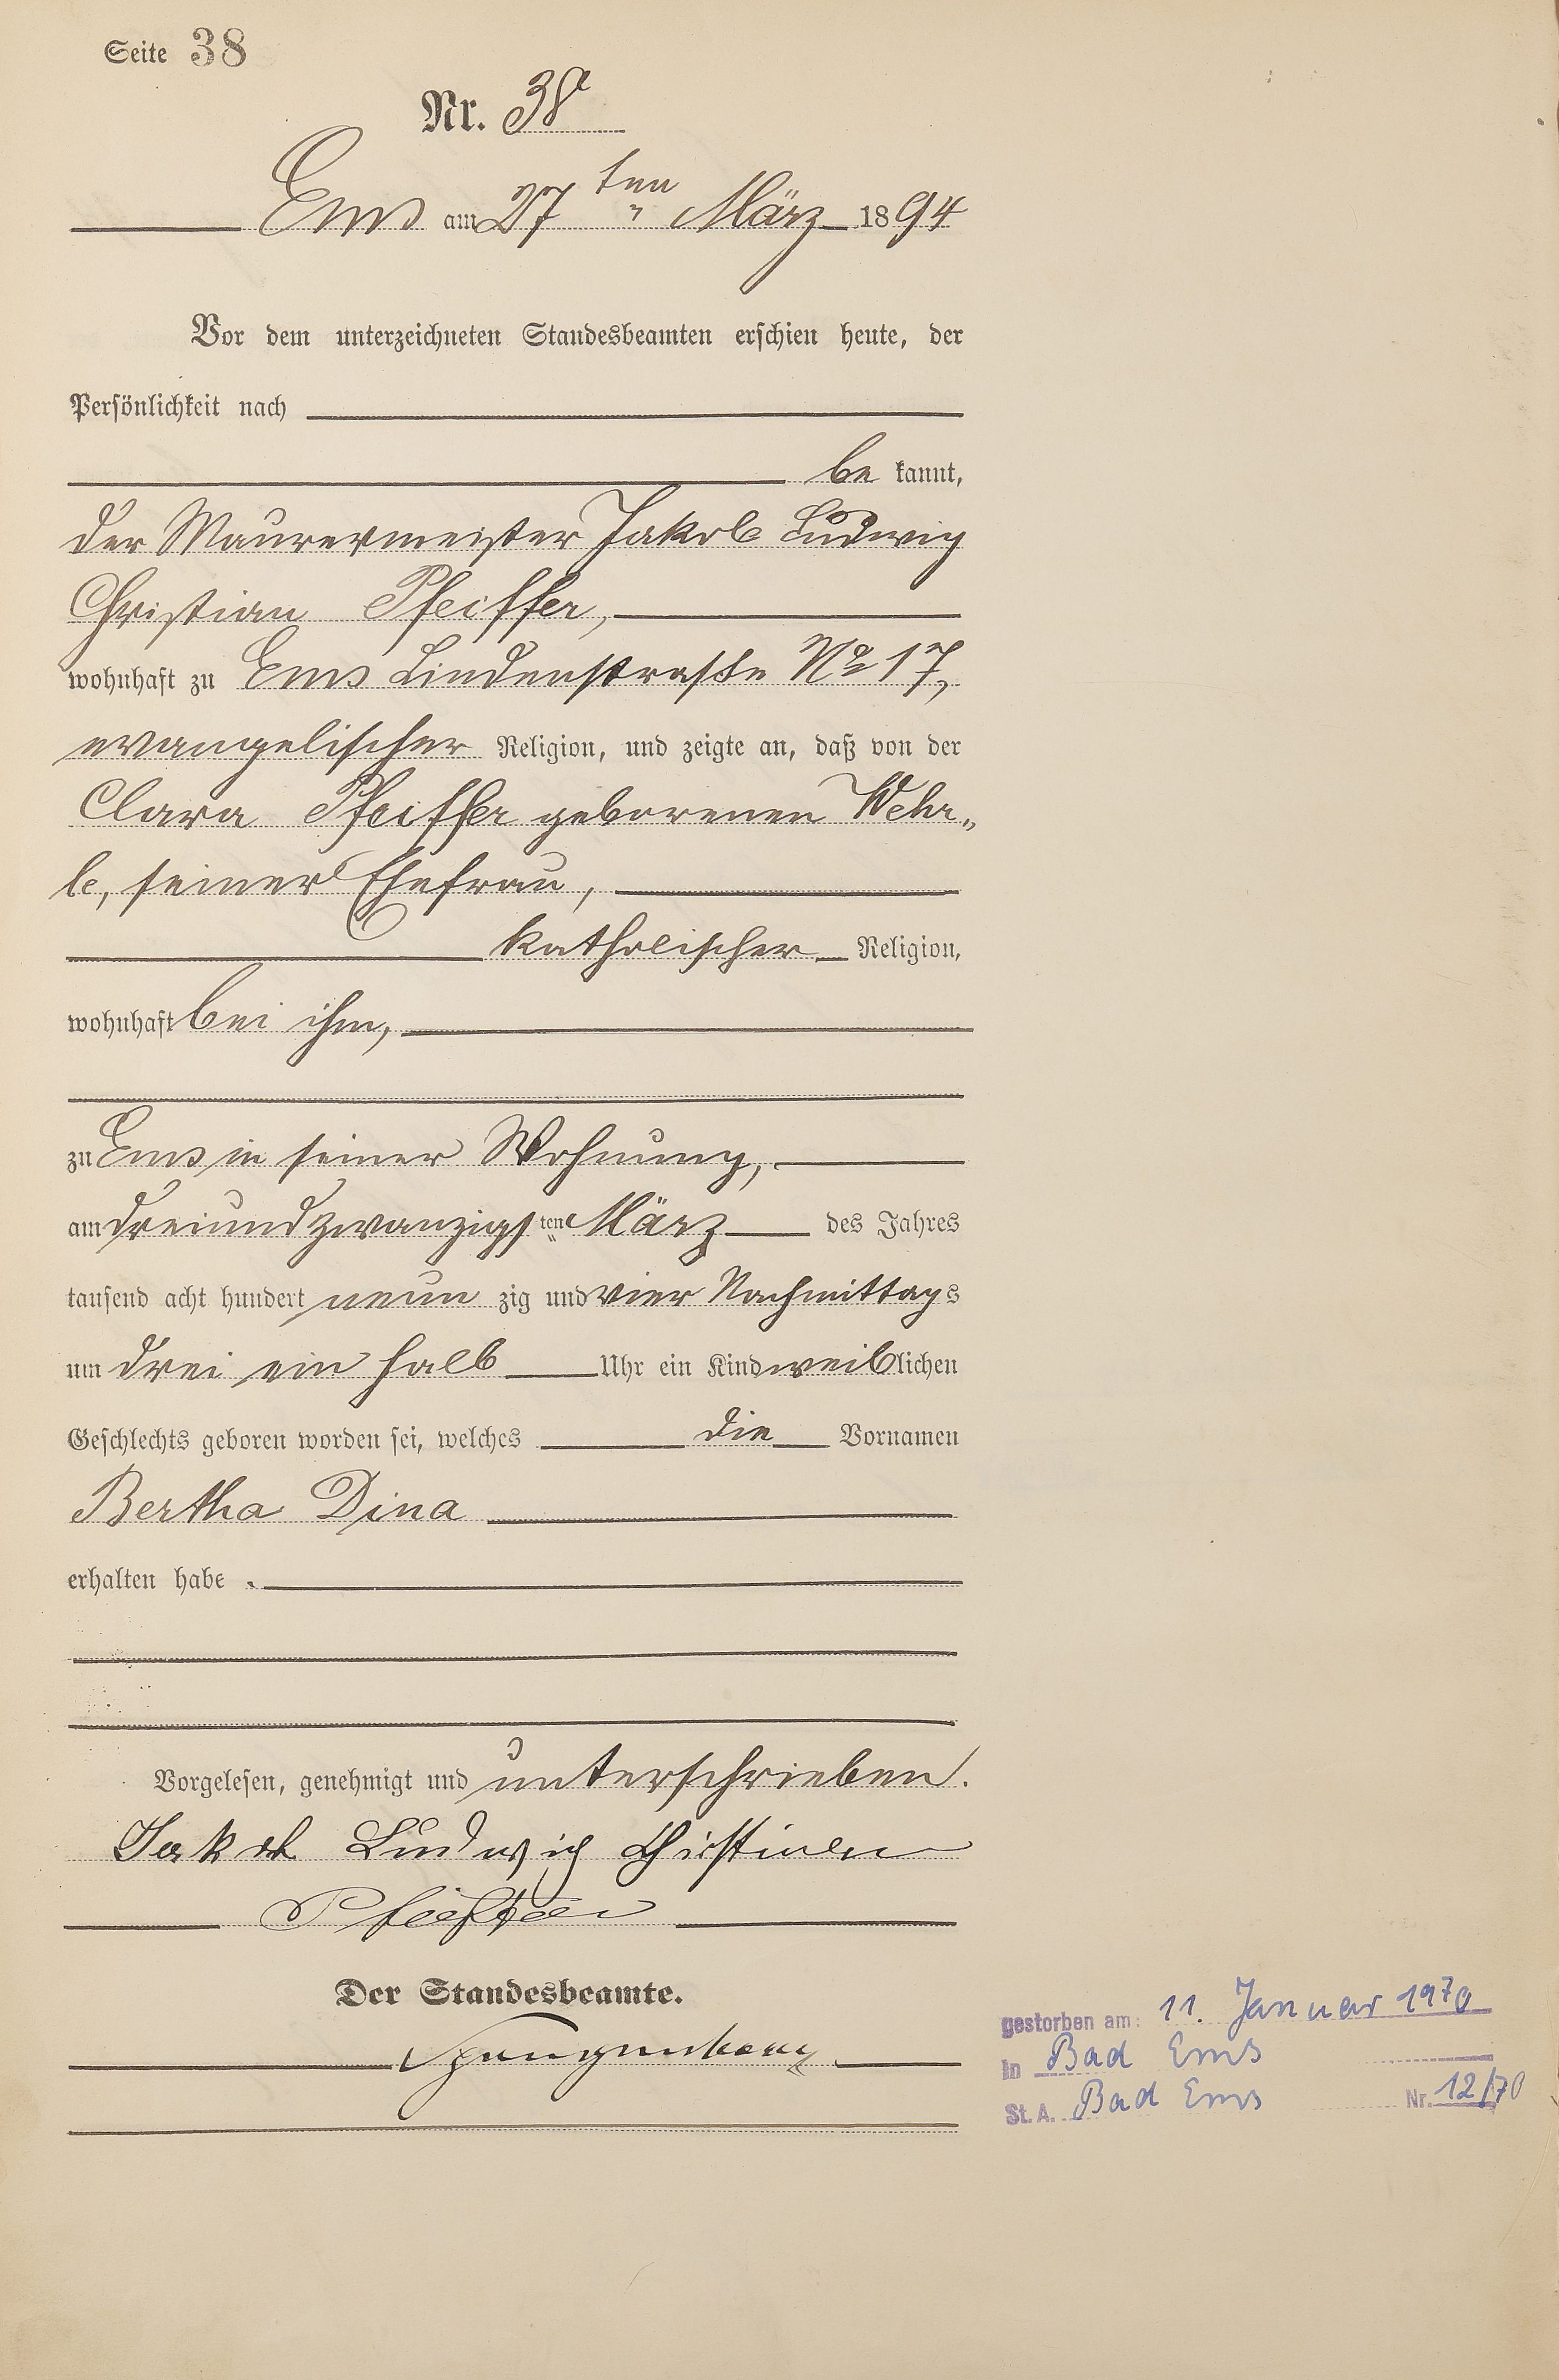 Seite 38
Nr. 38
Ems am 27 ten März 1894
Vor dem unterzeichneten Standesbeamten erschien heute, der
Persönlichkeit nach
be kannt,
der Maurermeister Jakob Ludwig
Christian Pfeiffer,
wohnhaft zu Ems Lindenstraße No 17,
evangelischer Religion, und zeigte an, daß von der
Clara Pfeiffer geborenen Wehr„
le, seiner Ehefrau,
katholischer Religion,
wohnhaft bei ihm,
zu Ems in seiner Wohnung,
am dreiundzwanzigsten März des Jahres
tausend acht hundert neunzig und vier Nachmittags
um drei ein halb Uhr ein Kind weiblichen
Geschlechts geboren worden sei, welches die Vornamen
Bertha Dina
erhalten habe.
Vorgelesen, genehmigt und unterschrieben.
Jakob Ludwig Christian
Pfeiffer
Der Standesbeamte.
Spangenberg
gestorben am: 11. Januar 1970
in Bad Ems
St. A. Bad Ems Nr. 12/70